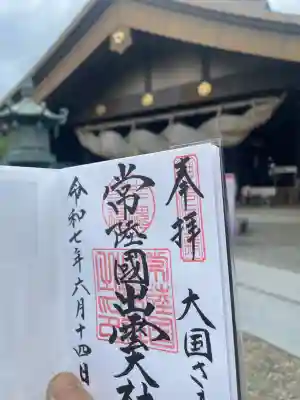 奉拝
大国さま
常陸國出雲大社
令和七年六月十四日